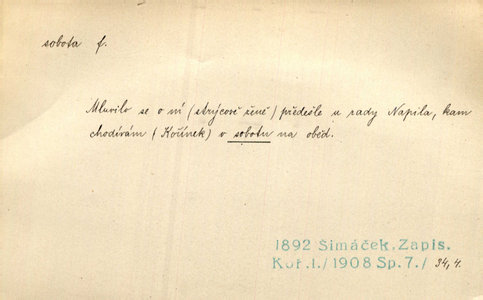 sobota f.
Mluvilo se o ní (strýcově ženě) předešle u rady Napila, kam
chodívám (Kořínek) v sobotu na oběd.
1892 Šimáček, Zapis.
Koř. I./1908 Sp. 7./ 34, 4.